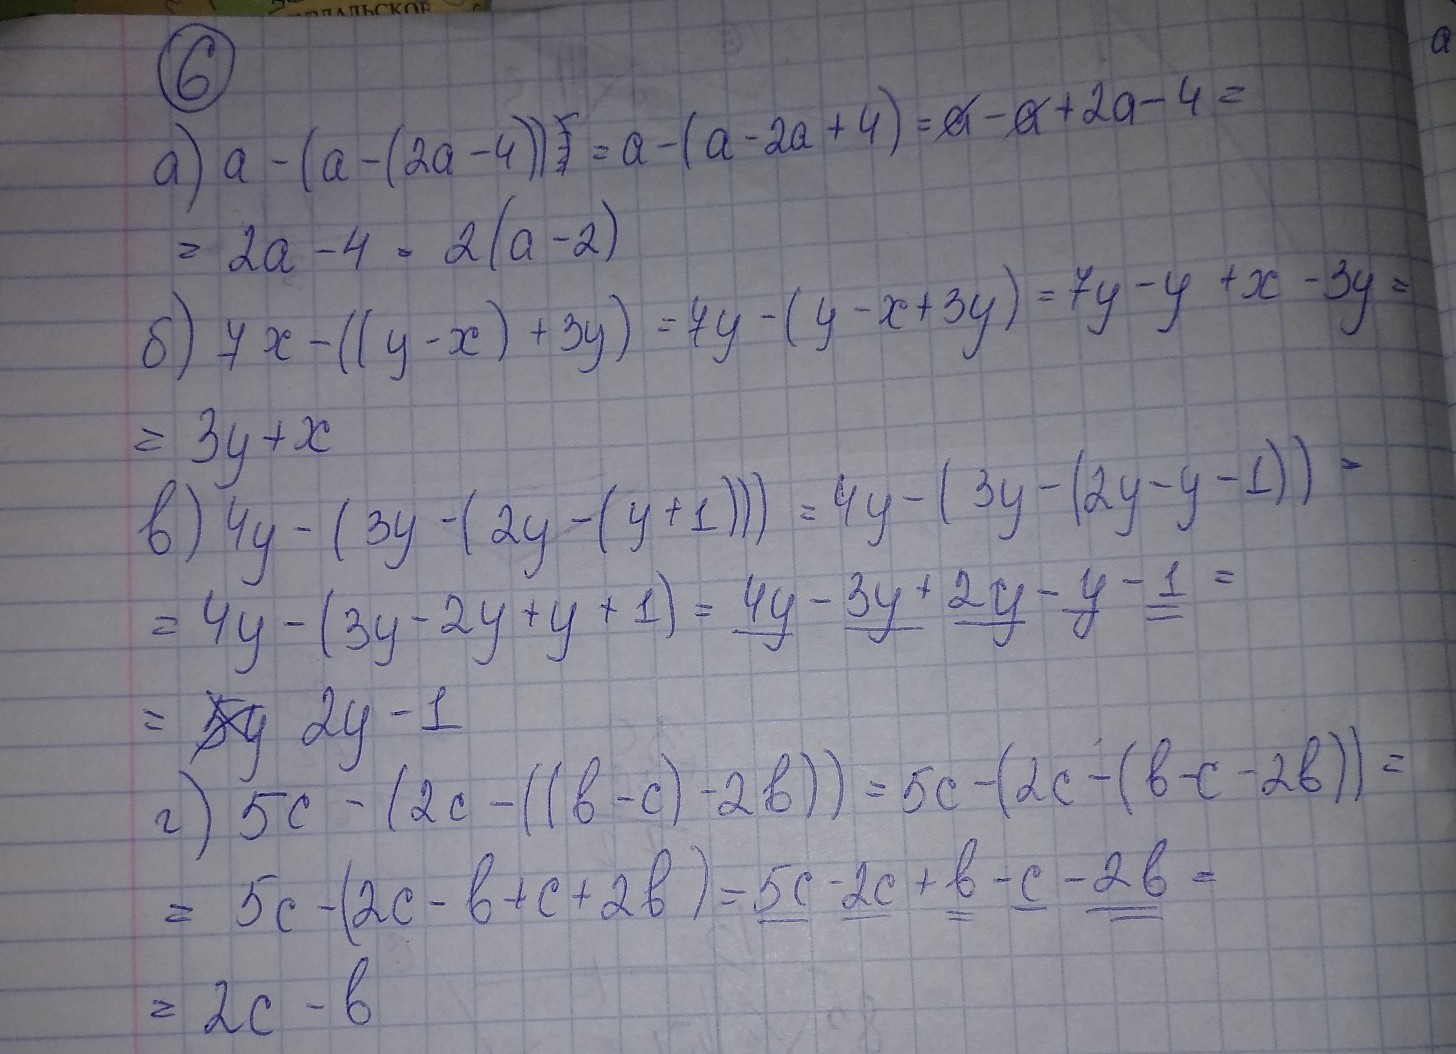 6
а) a - (a - (2a - 4)) = a - (a - 2a + 4) = a - a + 2a - 4 =
= 2a - 4 = 2(a - 2)
б) 7x - ((y - x) + 3y) = 7y - (y - x + 3y) = 7y - y + x - 3y =
= 3y + x
в) 4y - (3y - (2y - (y + 1))) = 4y - (3y - (2y - y - 1)) =
= 4y - (3y - 2y + y + 1) = 4y - 3y + 2y - y - 1 =
= 2y - 1
г) 5c - (2c - ((b - c) - 2b)) = 5c - (2c - (b - c - 2b)) =
= 5c - (2c - b + c + 2b) = 5c - 2c + b - c - 2b =
= 2c - b
a